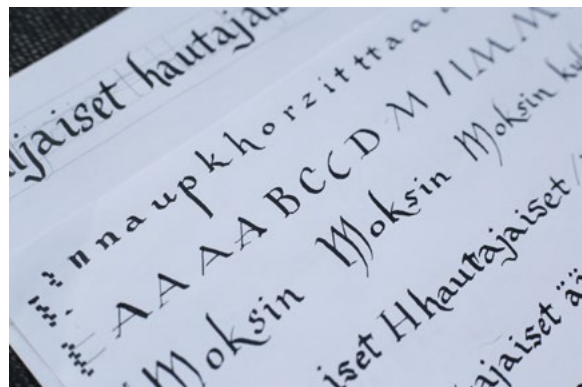 jaiset hautajais
n n a u p k h o r z i t t t a a
A A A A B C C D M I I M M
Moksin Moksin Moksin
iset Hhautajaiset
tajaiset ää